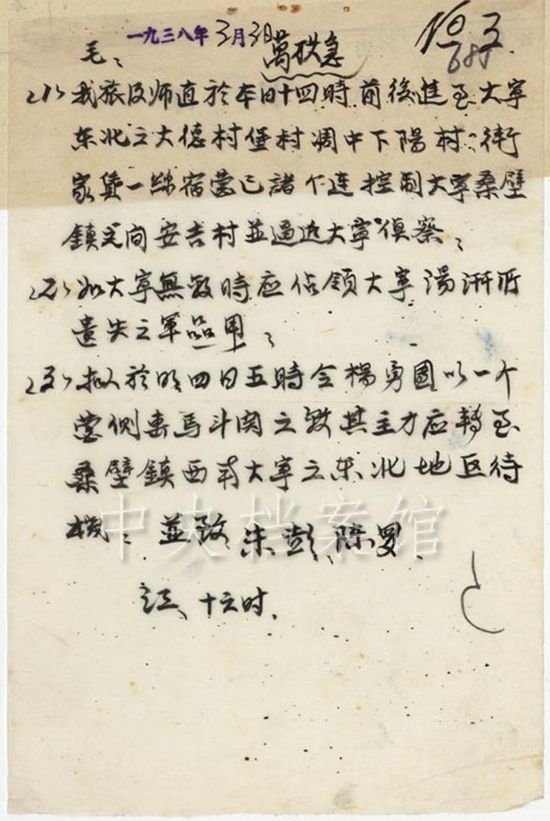 一九三八年3月3日 萬砍急 No 3
685
毛:
(1)我旅及师直於本日十四時前後進至大寧
东北之大德村堡村凋中下陽村:衛
家垡一線宿營已諸个连控制大寧桑壁
鎮关向安吉村並逼近大寧偵察:
(2)如大寧無敌時应佔領大寧湯浙所
遺失之軍品用:
(3)拟於明四日五時令楊勇團以一个
營侧击馬斗関之敌其主力应轉至
桑壁鎮西南大寧之东北地区待
機:並致朱彭、陈罗、
江、十六时.
中央档案馆